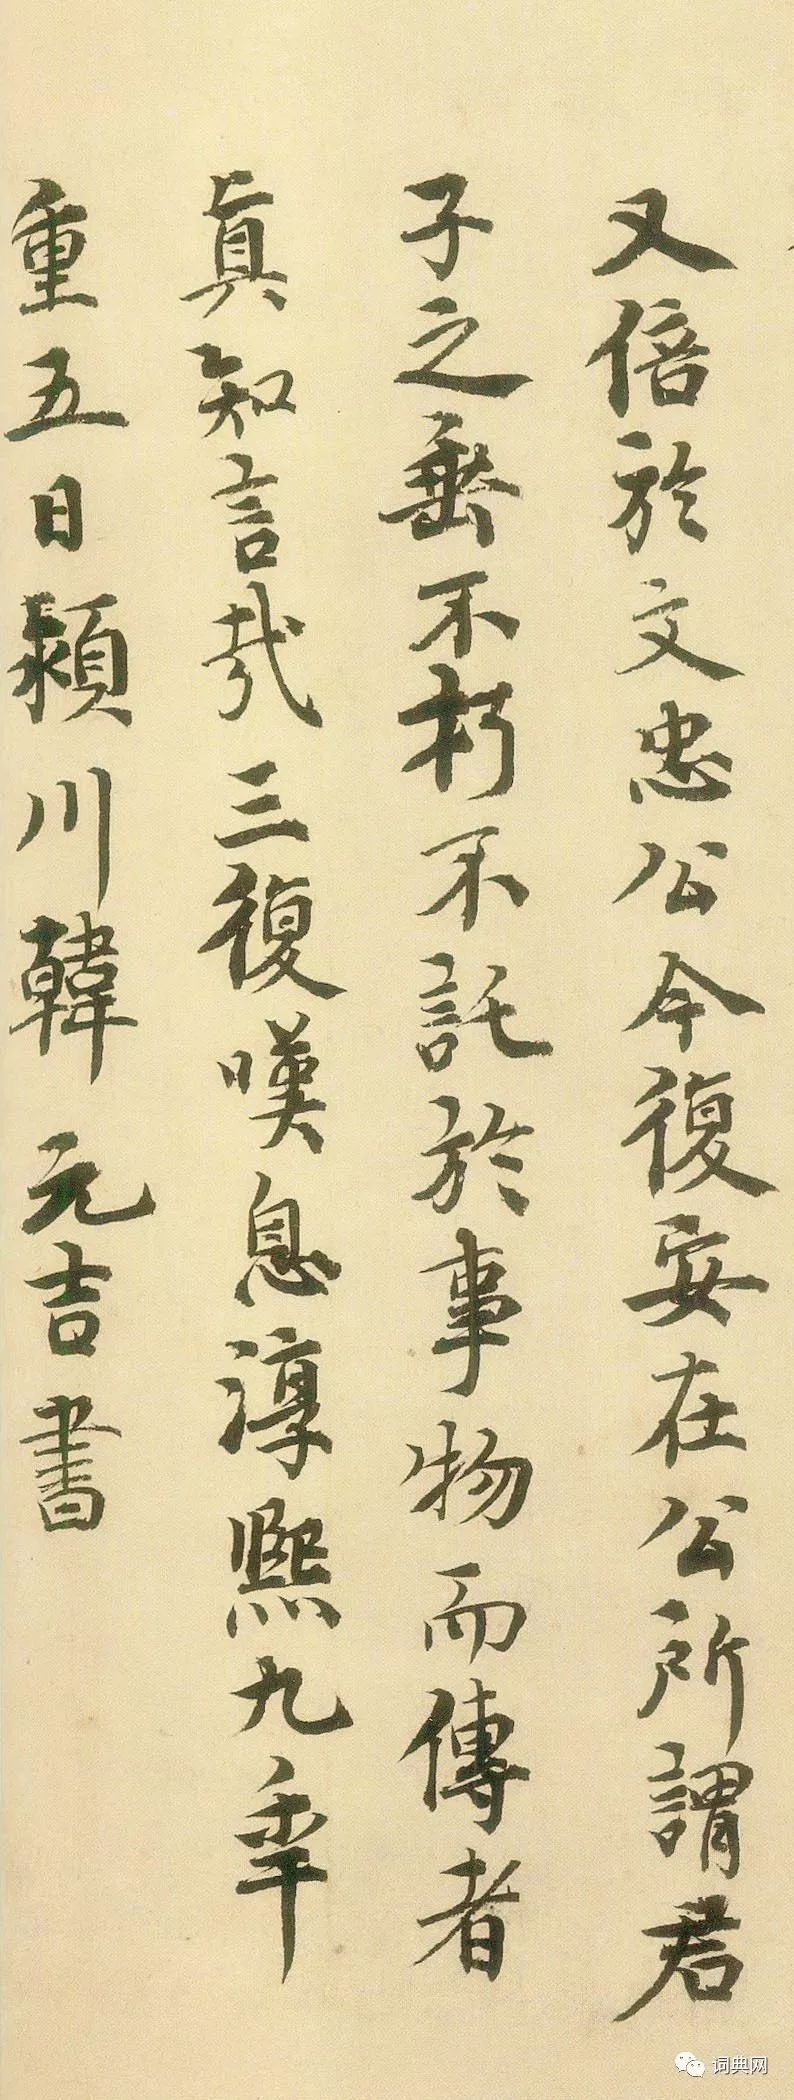 又倍於文忠公今復安在公所謂君
子之垂不朽不託於事物而傳者
真知言哉三復嘆息淳熙九年
重五日潁川韓元吉書
词典网